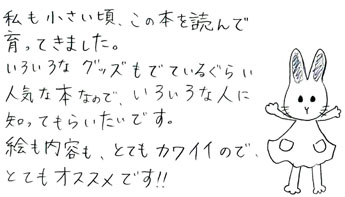 私も小さい頃、この本を読んで
育ってきました。
いろいろな グッズもでているぐらい
人気な本なので、いろいろな人に
知ってもらいたいです。
絵も内容も、とてもカワイイので、
とてもオススメです!!